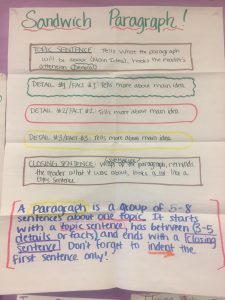 Sandwich Paragraph!
TOPIC SENTENCE: Tells what the paragraph
will be about (Main Idea), hooks the reader's
attention (General)
DETAIL #1/FACT #1: Tells more about main idea
DETAIL #2/FACT #2: Tells more about main idea
DETAIL #3/FACT #3: Tells more about main idea
CLOSING SENTENCE: Wraps up the paragraph, reminds
the reader what it was about, looks a lot like a
topic sentence
A paragraph is a group of 5-8
sentences about one topic. It starts
with a topic sentence, has between (3-5
details or facts) and ends with a closing
sentence. Don't forget to indent the
first sentence only!